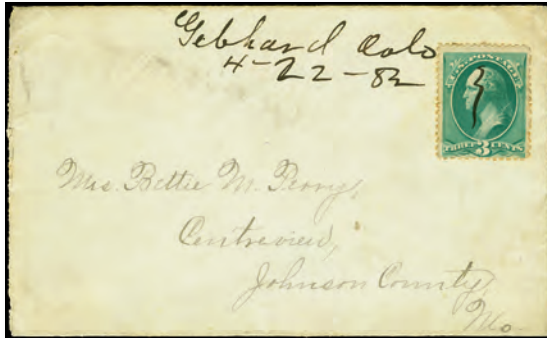 Gebhard Colo
4-22-82
U.S. POSTAGE
THREE 3 CENTS
Mrs. Bettie M. Perry,
Centreview,
Johnson County,
Mo